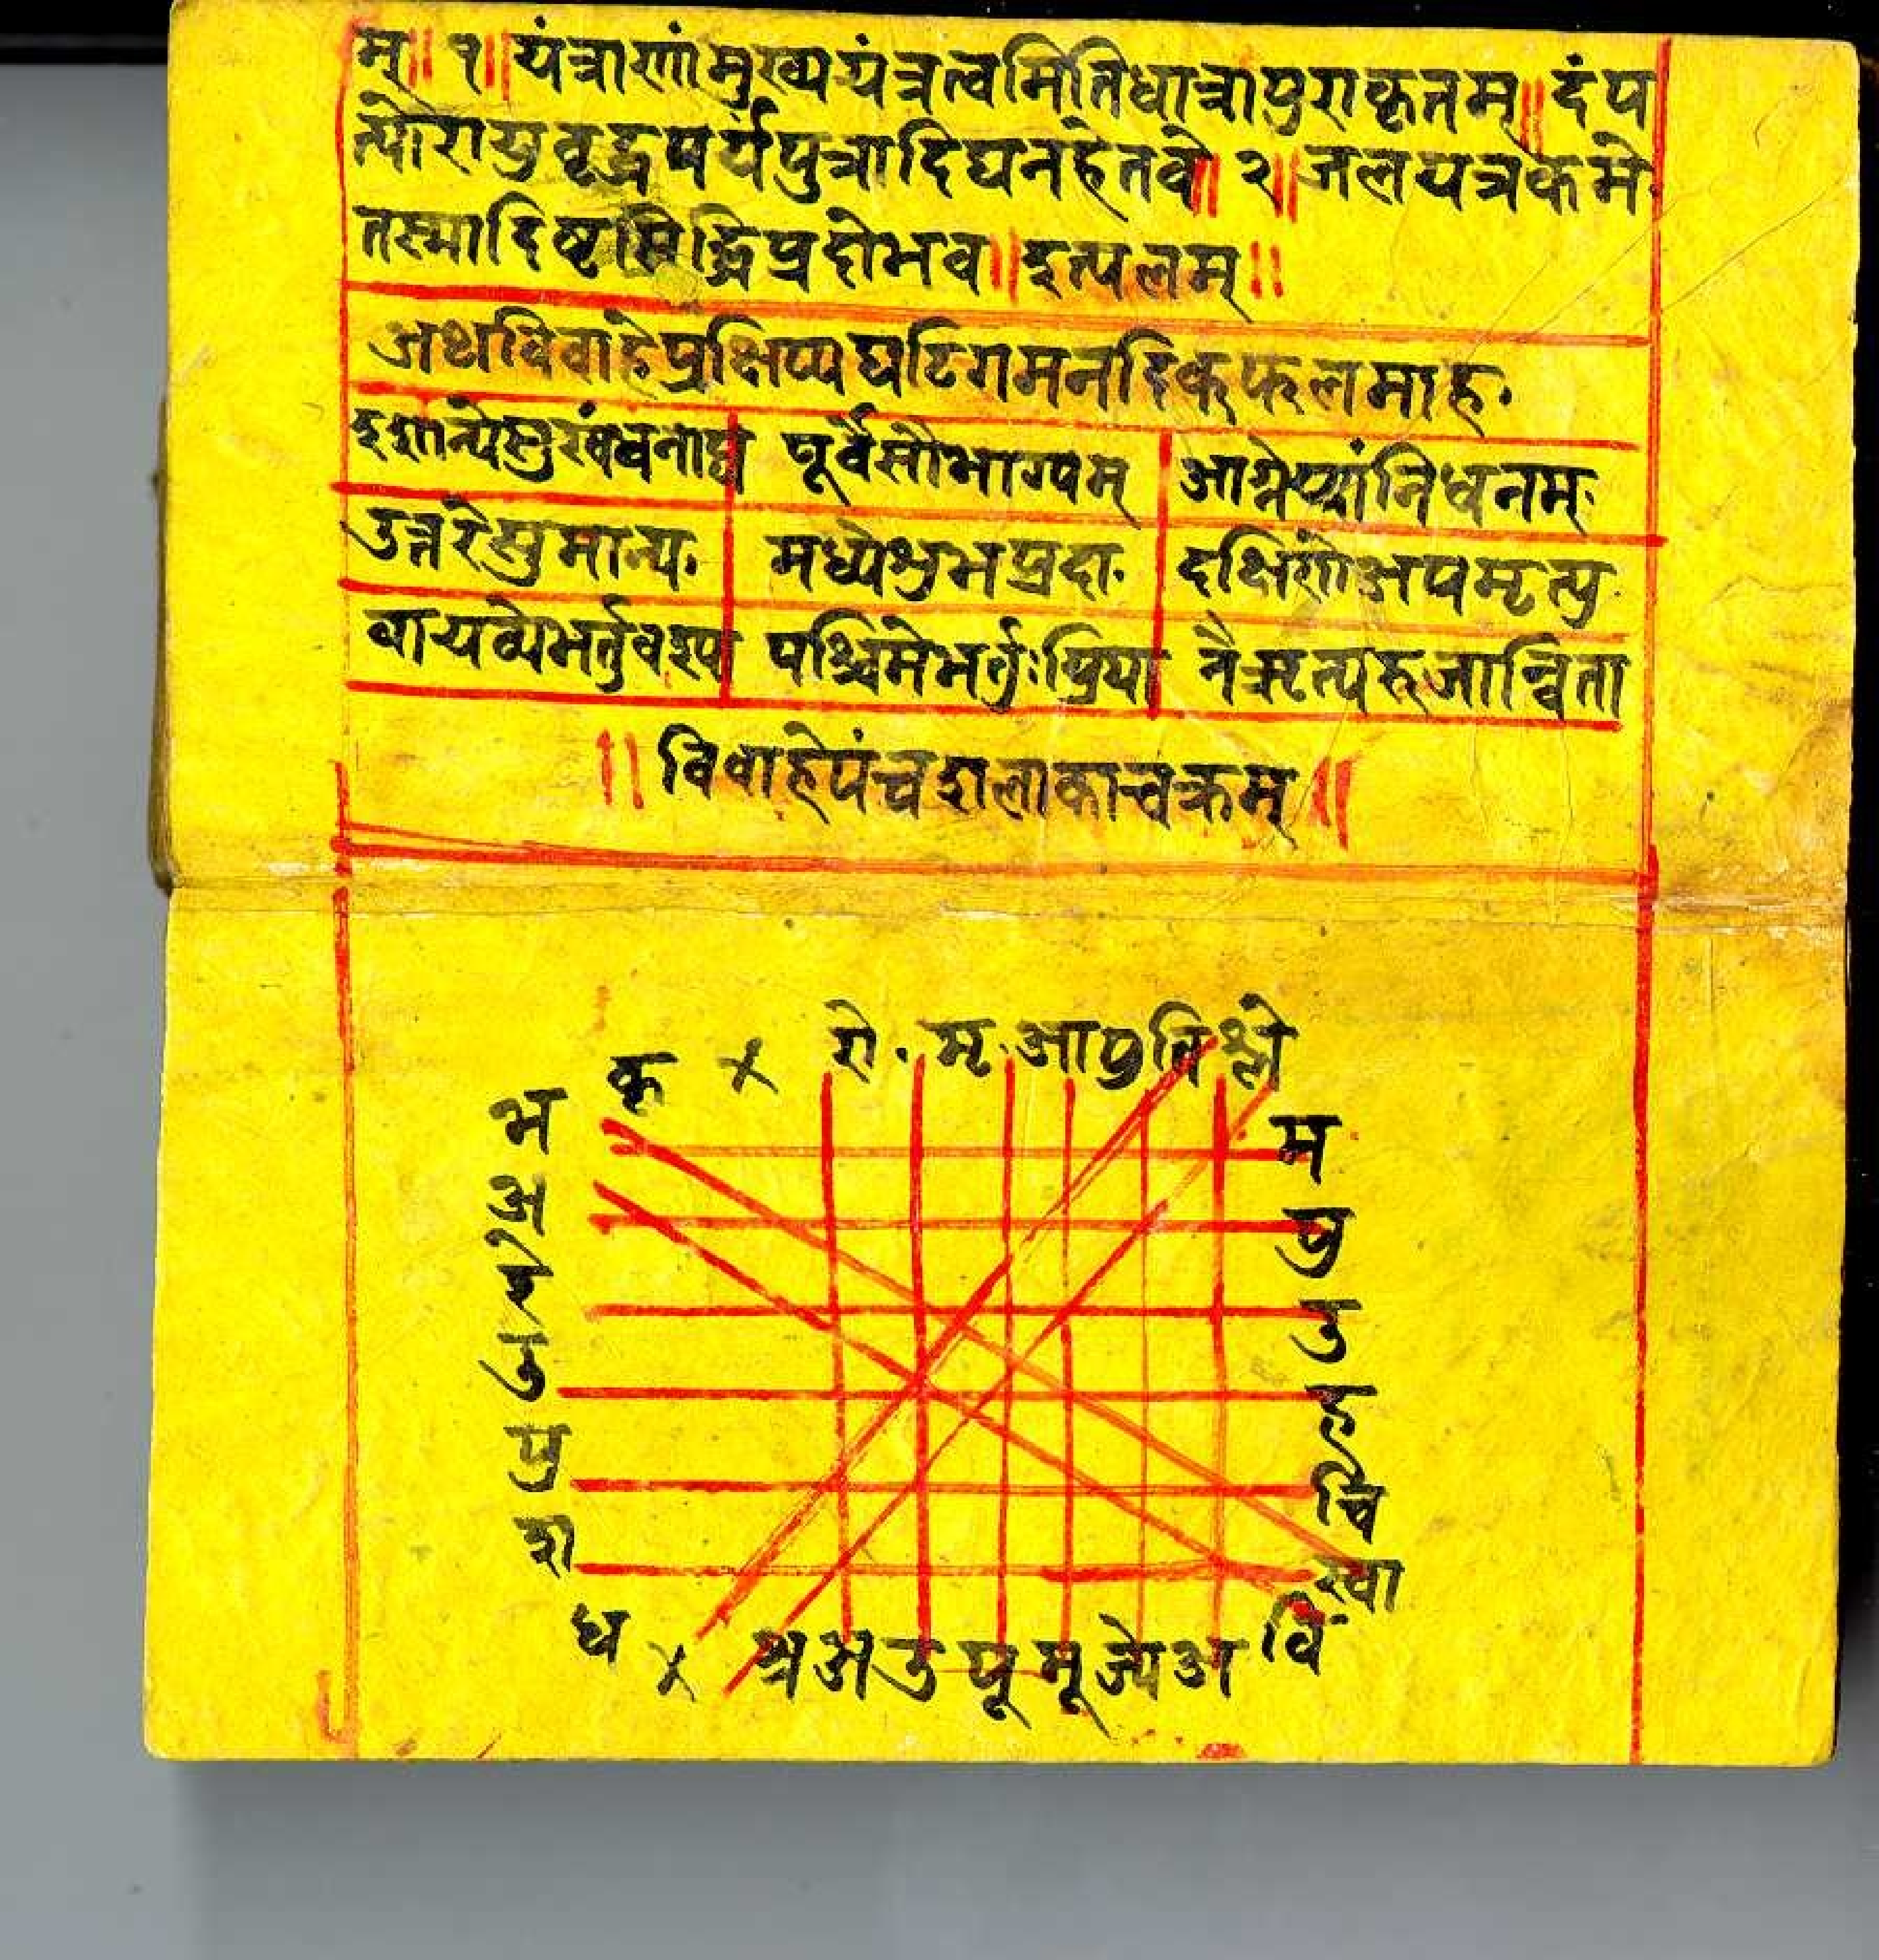 म्॥ १॥ यंत्राणांमुख्ययंत्रत्वमितिधात्रापुराकृतम्॥ दंप
त्योरायुवृद्ध्यर्थंपुत्रादिधनहेतवे॥ २॥ जलयत्रकमे
तस्मादिष्टसिद्धिप्रदोभव॥ इत्यलम्॥
अथविवाहेप्रक्षिप्यघटिगमनदिक्फलमाह.
इशान्येसुखंधनाप्त पूर्वेसौभाग्यम् आग्नेय्यांनिधनम्
उत्तरेसुमान्य. मध्येशुभप्रदा. दक्षिणेअपमृत्यु
वायव्येभर्तुवश्य पश्चिमेभर्तृःप्रिया नैऋत्यरुजान्विता
॥ विवाहेपंचशलाकाचक्रम् ॥
कृ × रो. मृ. आ पु ति श्ले
भ म
अ पु
रे उ
उ ह
पु चि
श स्वा
ध × श्र अ उ पू मू ज्ये अ वि